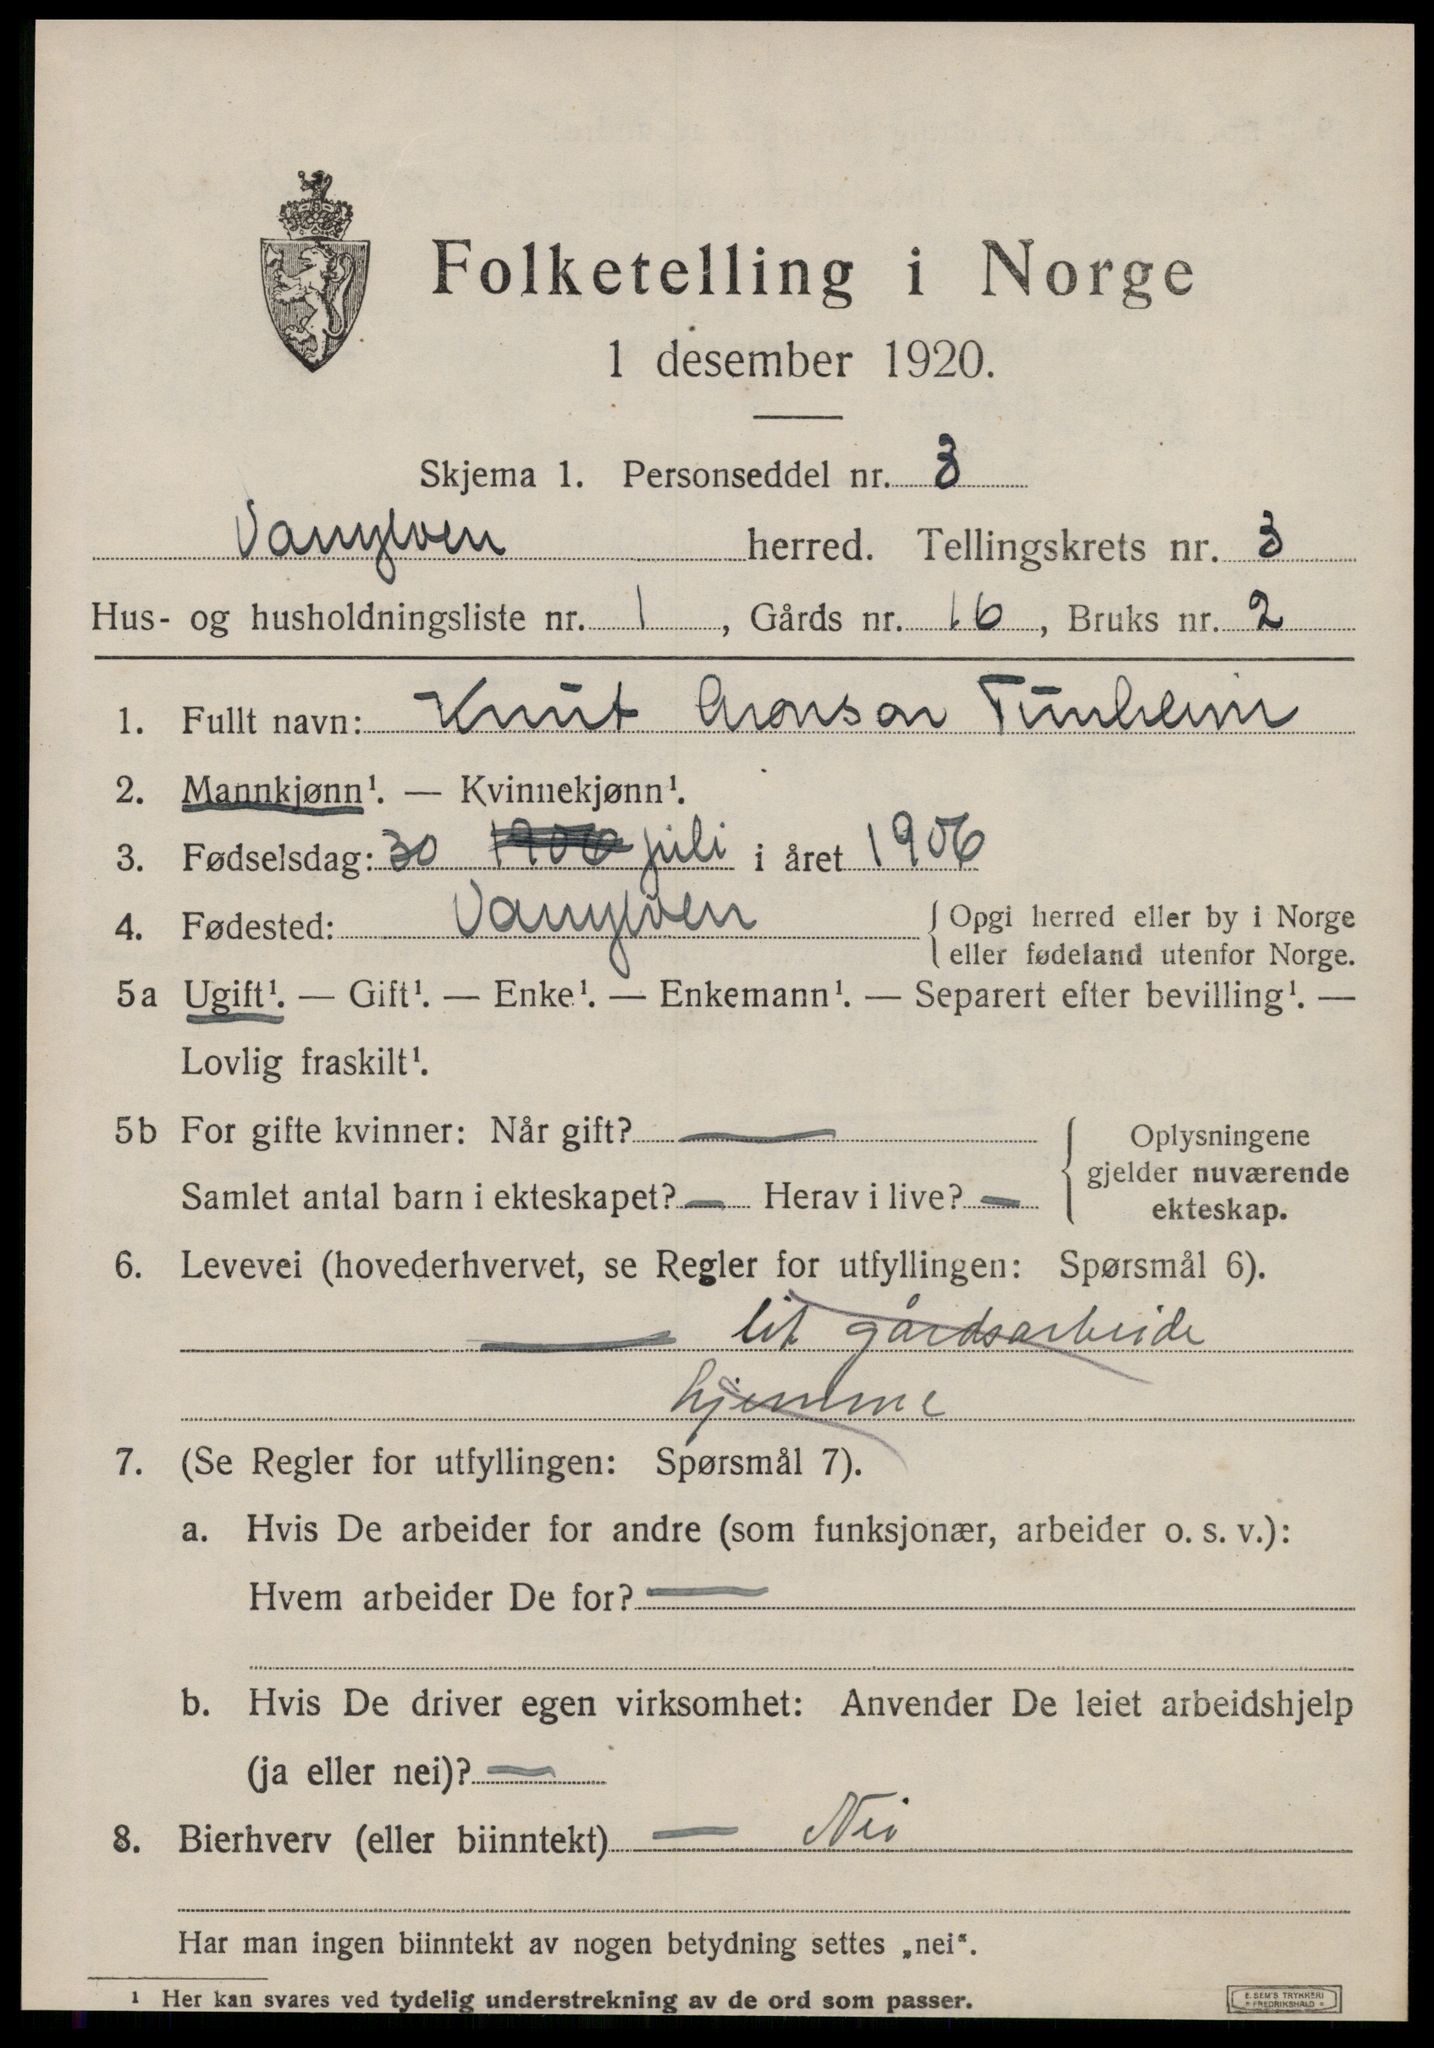 Folketelling i Norge
1 desember 1920.
Skjema 1. Personseddel nr. 3
Vanylven herred. Tellingskrets nr. 3
Hus- og husholdningsliste nr. 1, Gårds nr. 16, Bruks nr. 2
1. Fullt navn: Knut Aronson Tunheim
2. Mannkjønn¹. — Kvinnekjønn¹.
3. Fødselsdag: 30 1906 juli i året 1906
4. Fødested: Vanylven { Opgi herred eller by i Norge
eller fødeland utenfor Norge.
5a Ugift¹. — Gift¹. — Enke¹. — Enkemann¹. — Separert efter bevilling¹. —
Lovlig fraskilt¹.
5b For gifte kvinner: Når gift? — { Oplysningene
gjelder nuværende
ekteskap.
Samlet antal barn i ekteskapet? — Herav i live? —
6. Levevei (hovederhvervet, se Regler for utfyllingen: Spørsmål 6).
— lit gårdsarbeide
hjemme
7. (Se Regler for utfyllingen: Spørsmål 7).
a. Hvis De arbeider for andre (som funksjonær, arbeider o. s. v.):
Hvem arbeider De for? —
b. Hvis De driver egen virksomhet: Anvender De leiet arbeidshjelp
(ja eller nei)? —
8. Bierhverv (eller biinntekt) — Nei
Har man ingen biinntekt av nogen betydning settes „nei“.
¹ Her kan svares ved tydelig understrekning av de ord som passer.
E. SEM'S TRYKKERI
* FREDRIKSHALD *